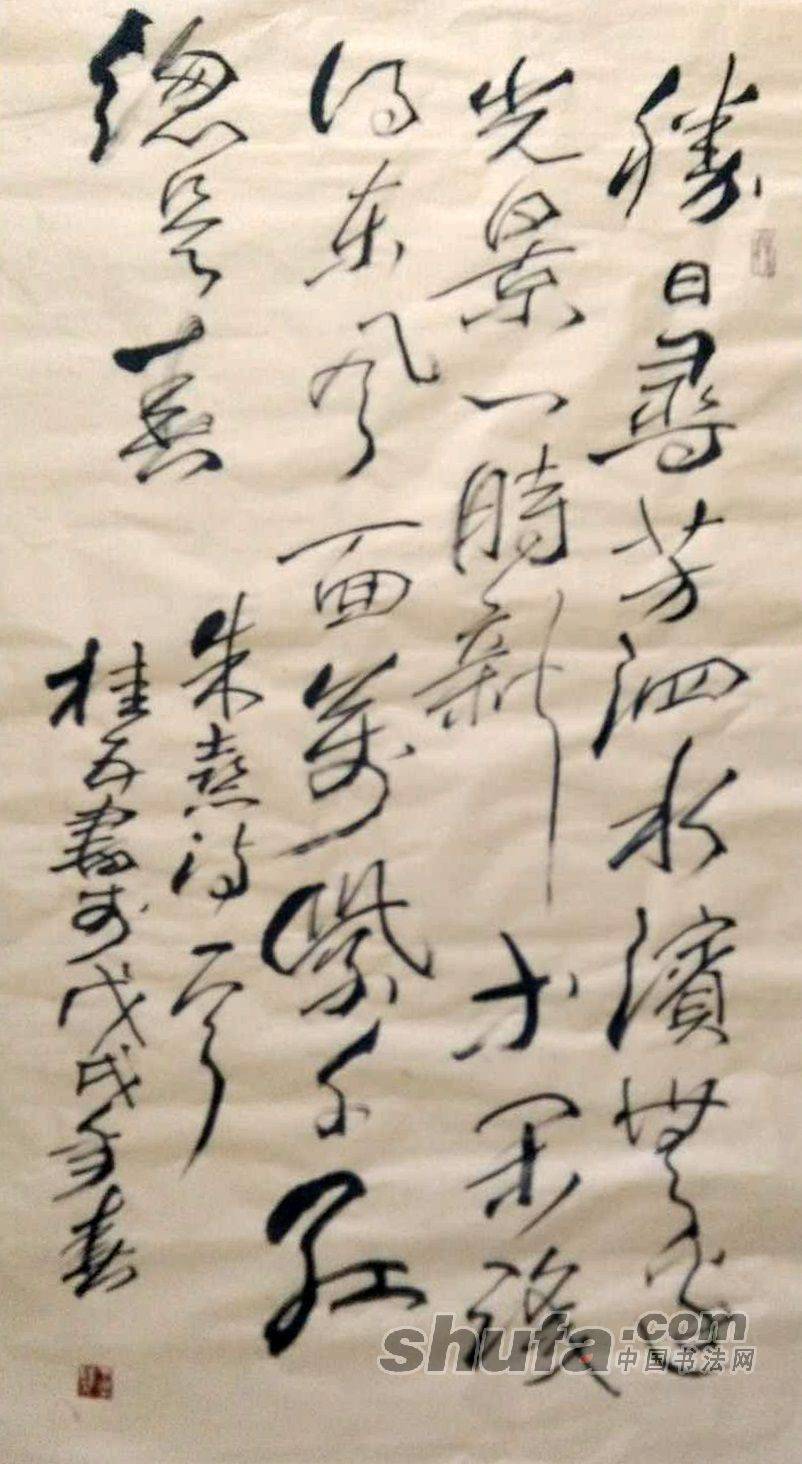 勝日尋芳泗水濱無邊
光景一時新等閑識
得東風面萬紫千紅
總是春
朱熹詩一首
桂書於戊戌年春
shufa.com
中国书法网